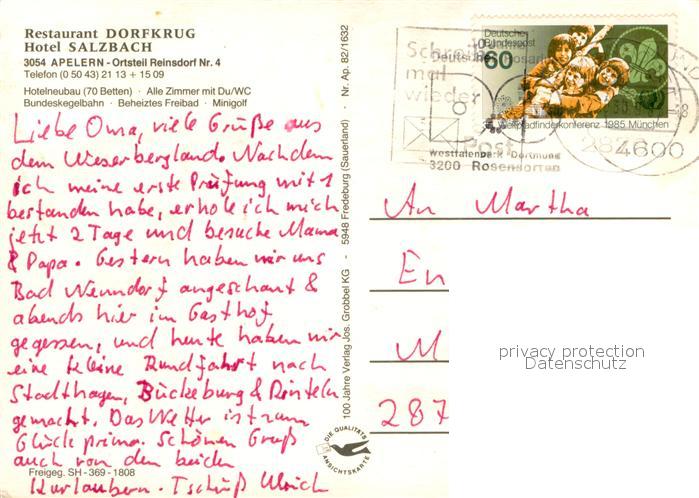 Restaurant DORFKRUG
Hotel SALZBACH
3054 APELERN - Ortsteil Reinsdorf Nr. 4
Telefon (0 50 43) 21 13 + 15 09
Hotelneubau (70 Betten) · Alle Zimmer mit Du/WC
Bundeskegelbahn · Beheiztes Freibad · Minigolf
Liebe Oma, viele Grüße aus
dem Weserbergland. Nachdem
ich meine erste Prüfung mit 1
bestanden habe, erhole ich mich
jetzt 2 Tage und besuche Mama
& Papa. Gestern haben wir uns
Bad Nenndorf angeschaut &
abends hier im Gasthof
gegessen, und heute haben wir
eine kleine Rundfahrt nach
Stadthagen, Bückeburg & Rinteln
gemacht. Das Wetter ist zum
Glück prima. Schönen Gruß
auch von den beiden
Kurlaubern. Tschüß Ulrich
Freigeg. SH - 369 - 1808
100 Jahre Verlag Jos. Grobbel KG · 5948 Fredeburg (Sauerland) · Nr. Ap. 82/1632
DIE QUALITÄTS
ANSICHTSKARTE
Schreib
mal
wieder
Post
Westfalenpark Dortmund
3200 Rosengarten
Deutsche
Bundespost
60
Weltpfadfinderkonferenz 1985 München
4600
An Martha
En
M
287
privacy protection
Datenschutz